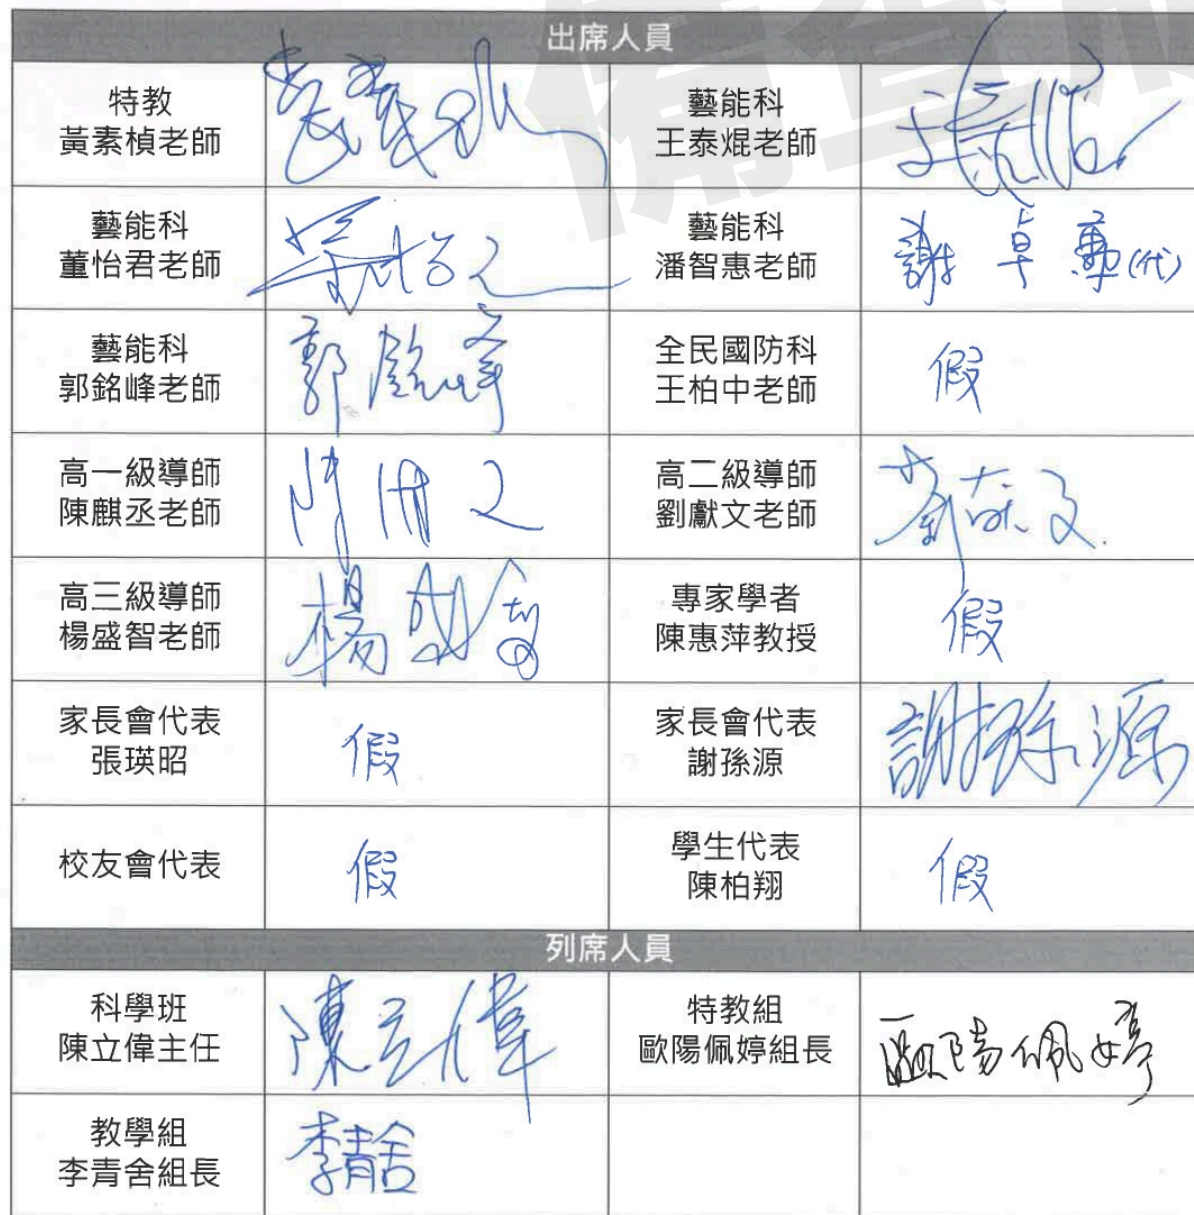 出席人員
特教
黃素楨老師
藝能科
王泰焜老師
藝能科
董怡君老師
藝能科
潘智惠老師
謝卓勳(代)
藝能科
郭銘峰老師
郭銘峰
全民國防科
王柏中老師
假
高一級導師
陳麒丞老師
高二級導師
劉獻文老師
高三級導師
楊盛智老師
楊盛智
專家學者
陳惠萍教授
假
家長會代表
張瑛昭
假
家長會代表
謝孫源
謝孫源
校友會代表
假
學生代表
陳柏翔
假
列席人員
科學班
陳立偉主任
陳立偉
特教組
歐陽佩婷組長
歐陽佩婷
教學組
李青舍組長
李青舍